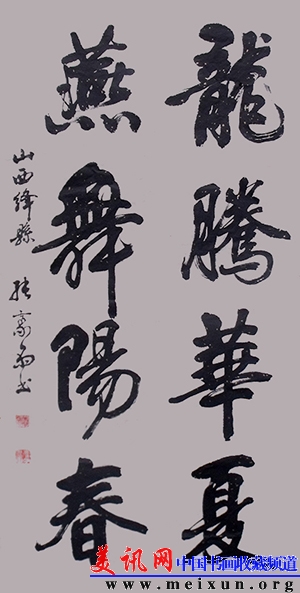 龍騰華夏
燕舞陽春
山西絳縣
書
美讯网 中国书画收藏频道
www.meixun.org